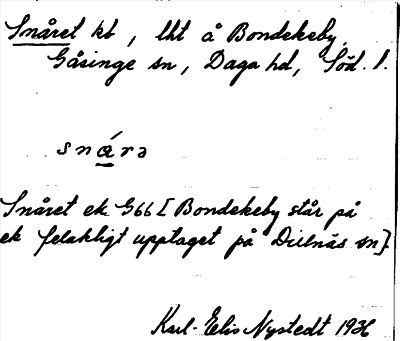 Snåret kt, lht å Bondekeby,
Gåsinge sn, Daga hd, Söd. l.
snárə
Snåret ek G66 [Bondekeby står på
ek felaktigt upptaget på Dillnäs sn]
Karl-Elis Nystedt 1936